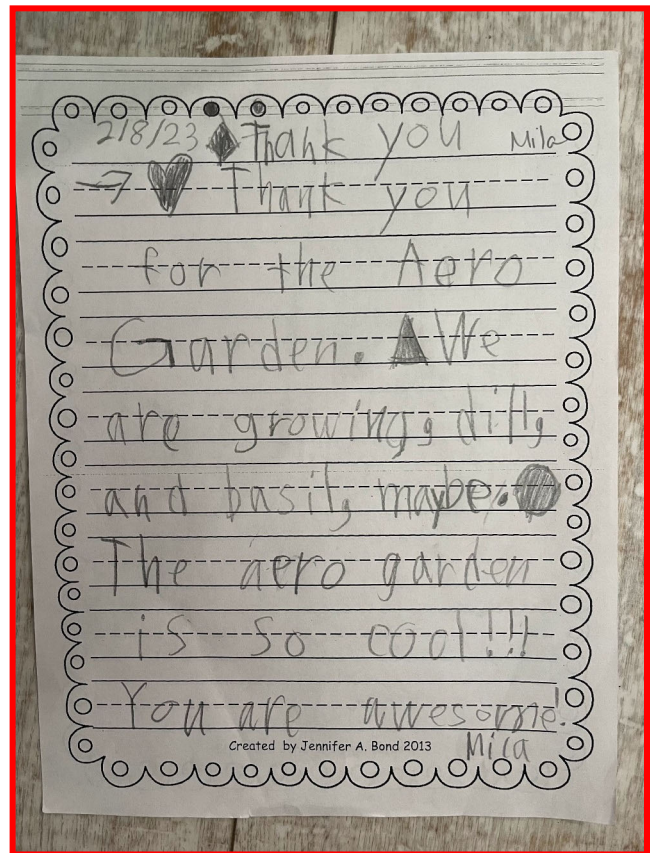 2/8/23 Thank you Mila
Thank you
for the Aero
Garden. We
are growing, dill,
and basil, maybe.
The aero garden
is so cool!!!
You are awesome!
Created by Jennifer A. Bond 2013
Mila